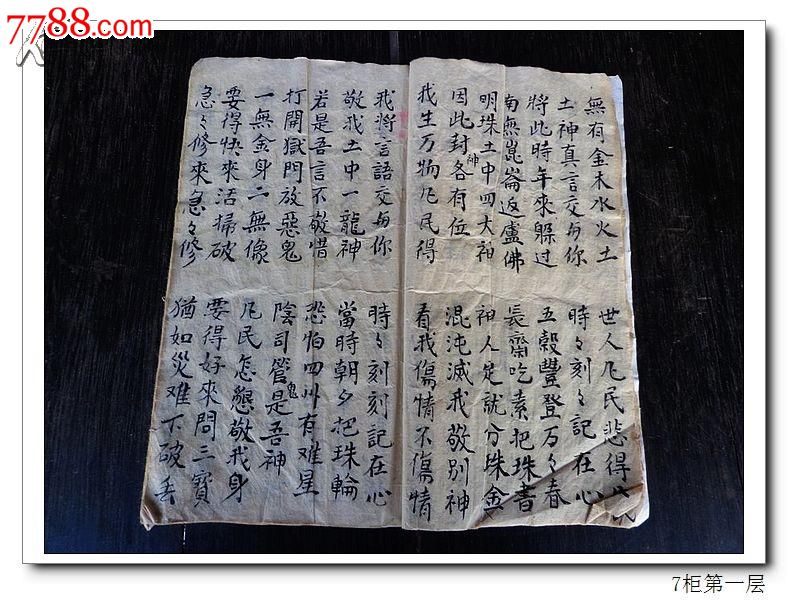 7788.com
無有金木水火土
世人凡民悲得
土神真言交与你
時々刻々記在心
將此時年來躲过
五穀豐登万々春
南無崑崙返盧佛
長齋吃素把珠書
明珠土中四大神
神人定就分珠金
因此封各神有位
混沌滅我敬別神
我生万物凡民得
看我傷情不傷情
我將言語交与你
時々刻刻記在心
敬我土中一龍神
當時朝夕把珠輪
若是吾言不敬惜
恐怕四州有难星
打開獄門放惡鬼
陰司管鬼是吾神
一無金身二無像
凡民怎懇敬我身
要得快來活掃破
要得好來問三寶
急々修來急々修
猶如災难下破丢
7柜第一层